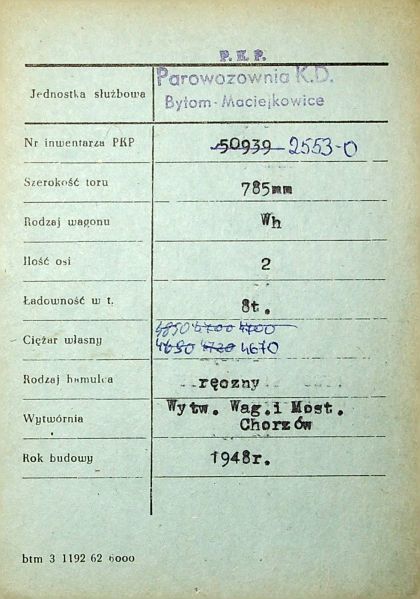 P. K. P.
Parowozownia K.D.
Jednostka służbowa
Bytom-Maciejkowice
Nr inwentarza PKP 50939 2553-0
Szerokość toru 785mm
Rodzaj wagonu Wh
Ilość osi 2
Ładowność w t. 8t.
4850 4700 4700
Ciężar własny 4650 4720 4670
Rodzaj hamulca ręczny
Wytwórnia Wytw. Wag. i Most.
Chorzów
Rok budowy 1948r.
btm 3 1192 62 6000